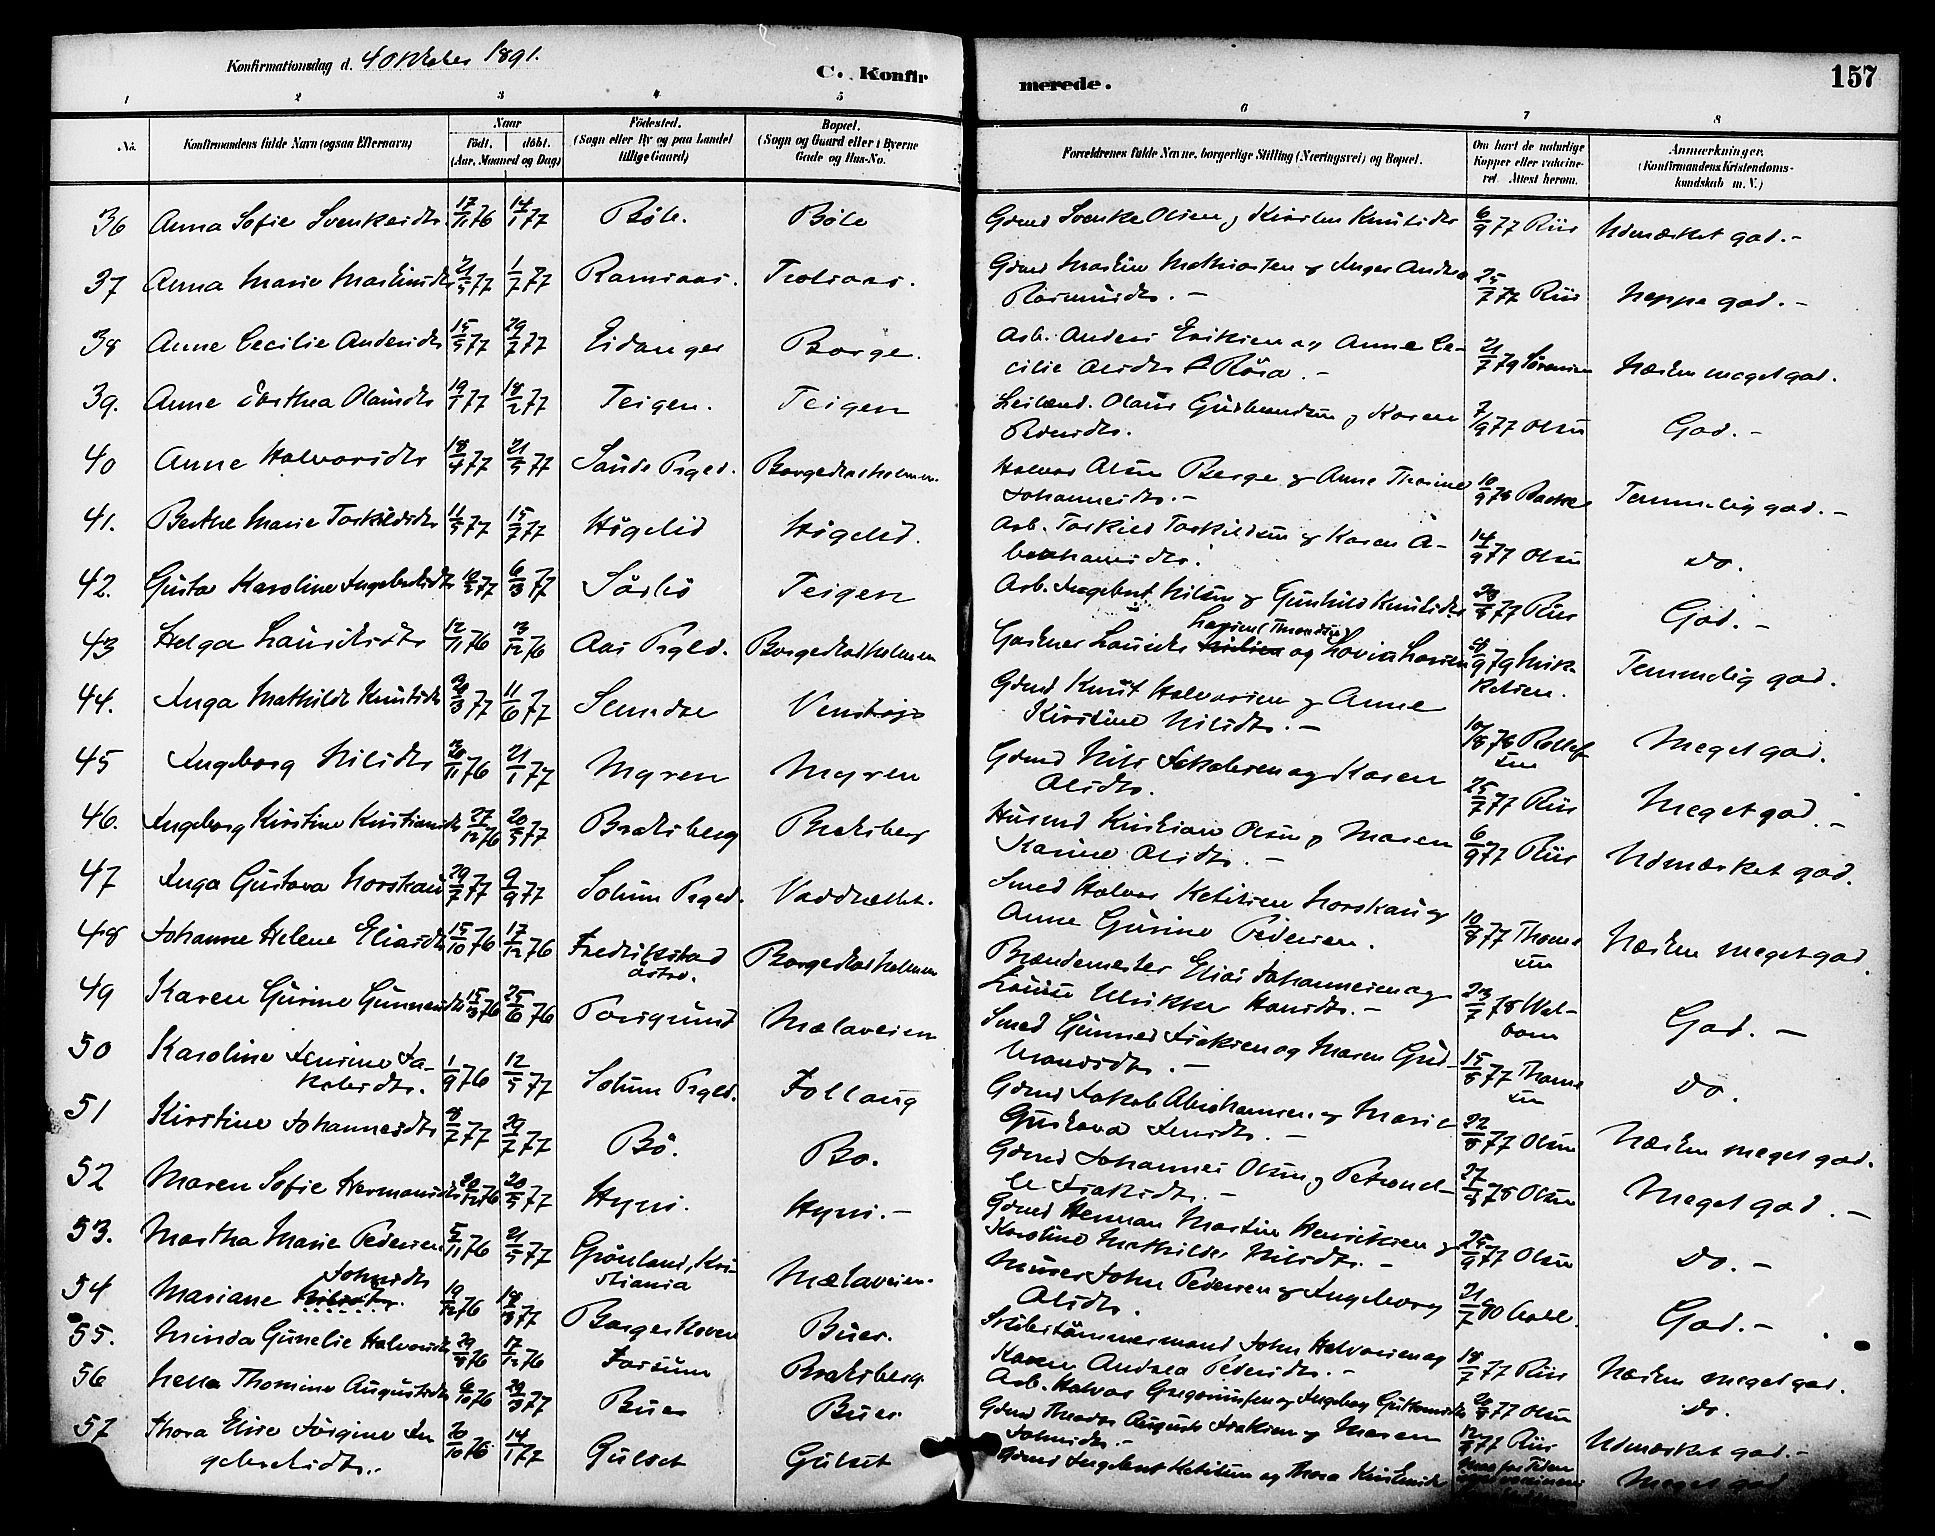 Konfirmationsdag d. 4 Oktober 1891.
C. Konfir
merede.
157
1 2 3 4 5 6 7 8
No.
Konfirmandens fulde Navn (ogsaa Efternavn)
Naar
födt. döbt.
(Aar, Maaned og Dag)
Födested.
(Sogn eller By og paa Landet
tillige Gaard)
Bopæl.
(Sogn og Gaard eller i Byerne
Gade og Hus-No.
Forældrenes fulde Navne, borgerlige Stilling (Næringsvei) og Bopæl.
Om havt de naturlige
Kopper eller vakcine-
ret. Attest herom.
Anmærkninger.
(Konfirmandens Kristendoms-
kundskab m. V.)
36 Anna Sofie Svenkesdtr 17/11 76 14/1 77 Böle. Böle Gdmd Svenke Olsen og Kirsten Knutsdtr 6/9 77 Riis Udmærket god.-
37 Anna Marie Martinsdtr 21/5 77 1/7 77 Gdmd Martin Mathiassen og Inger Andrea
Rasmusdtr.- 25/7 77 Riis Neppe god.-
38 Anne Cecilie Andersdtr 15/5 77 29/7 77 Eidanger Borge. Arb. Anders Eriksen og Anne Ce-
cilie Olsdtr 21/7 79 Sörensen Næsten meget god.
39. Anne Olausdtr 19/1 77 18/2 77 Teigen. Teigen Leilænd. Olaus Gudmundsen og Karen
7/9 77 Olsen God.-
40 Anne Halvorsdtr 18/4 77 21/5 77 Saude Prgld. Borgestadholmen. Halvor Olsen Berge og Anne Thorine
Johannesdtr.- 10/9 78 Backe Temmelig god.-
41. Berthe Marie Torkildsdtr 11/5 77 15/7 77 Högelid Högelid. Arb. Torkild Torkildsen og Karen A-
brahamsdtr. 14/9 77 Olsen do.
42. Gusta Karoline Ingebretsdtr 6/3 77 Sörbö Teigen Arb. Ingebret Nilsen og Gunhild Knutsdtr 77 Riis God.-
43 Helga Lauritsdtr 12/11 76 76 Aas Prgld. Borgestadholmen Gartner Laurits Larsen og Lovise Larsen 79 Mik-
kelsen. Temmelig god.
44. Inga Mathilde Knutsdtr 77 11/6 77 Venstöp Gdmd Knut Halvorsen og Anne
Kirstine Nilsdtr.- 10/8 78 Rollef-
sen Meget god.
45 Ingeborg Nilsdtr 76 21/1 77 Myren Myren Gdmd Nils Jakobsen og Karen
Olsdtr. 25/7 77 Riis Meget god.-
46. Ingeborg Kirstine Kristiansdtr 27/12 76 20/5 77 Bratsberg Bratsberg Husmd Kristian Olsen og Maren
Karine Olsdtr.- 6/9 77 Riis Udmærket god.
47 Inga Gustava Norskaug 29/7 77 9/9 77 Solum Prgld. Vaddrættet. Smed Halvor Ketilsen Norskaug
Anne Gurine Pedersen. 10/8 77 Thom-
sen Næsten meget god.
48 Johanne Helene Eliasdtr 15/10 76 17/12 76 Fredrikstad
östre. Borgestadholmen Brændemester Elias Johannesen og
Lovise Ulrikke Hansdtr.- 23/7 78 Wel-
bom God.-
49 Karen Gurine Gunnersdtr 15/3 76 25/6 76 Porsgrund Mælaveien Smed Gunner Isaksen og Maren Gud-
mundsdtr.- 15/8 77 Thom-
sen do.
50 Karoline Jensine Ja-
kobsdtr. 1/9 76 12/5 77 Solum Prgld. Follaug Gdmd Jakob Abrahamsen og Marie
Gustava Jensdtr.- 22/8 77 Olsen Næsten meget god.
51 Kirstine Johannesdtr 8/7 77 29/7 77 Bö. Bö. Gdmd Johannes Olsen og Petronel-
le Isaksdtr.- 27/8 78 Olsen Meget god.-
52 Maren Sofie Hermansdtr 20/12 76 20/5 77 Hyni. Hyni.- Gdmd Herman Martin Henriksen og
Karoline Mathilde Nilsdtr.- 25/9 77 Olsen do.-
53. Martha Marie Pedersen 5/11 76 21/5 77 Grönland, Kri-
stiania Mælaveien. Murer John Pedersen og Ingeborg
Olsdtr. 21/7 80 God.-
54 Mariane Johnsdtr 19/12 76 18/3 77 Borgeskoven Buer. Skibstömmermand John Halvorsen og
Karen Andrea Pedersdtr.- 18/7 77 Riis Næsten meget god.
55. Minda Gunelie Halvorsdtr 29/8 76 17/12 76 Fossum Bratsberg Arb. Halvor Gregoriussen og Ingeborg Guttormsdtr 77 Olsen do.
56 Nella Thomine Augustsdtr 6/10 76 77 Buer Buer Gdmd Theodor August Isaksen og Maren
Johnsdtr.- 77 Riis Udmærket god.-
57 Thora Elise Jörgine In-
gebretsdtr. 20/10 76 14/1 77 Gulset Gulset Gdmd Ingebret Ketilsen og Thora Meget god